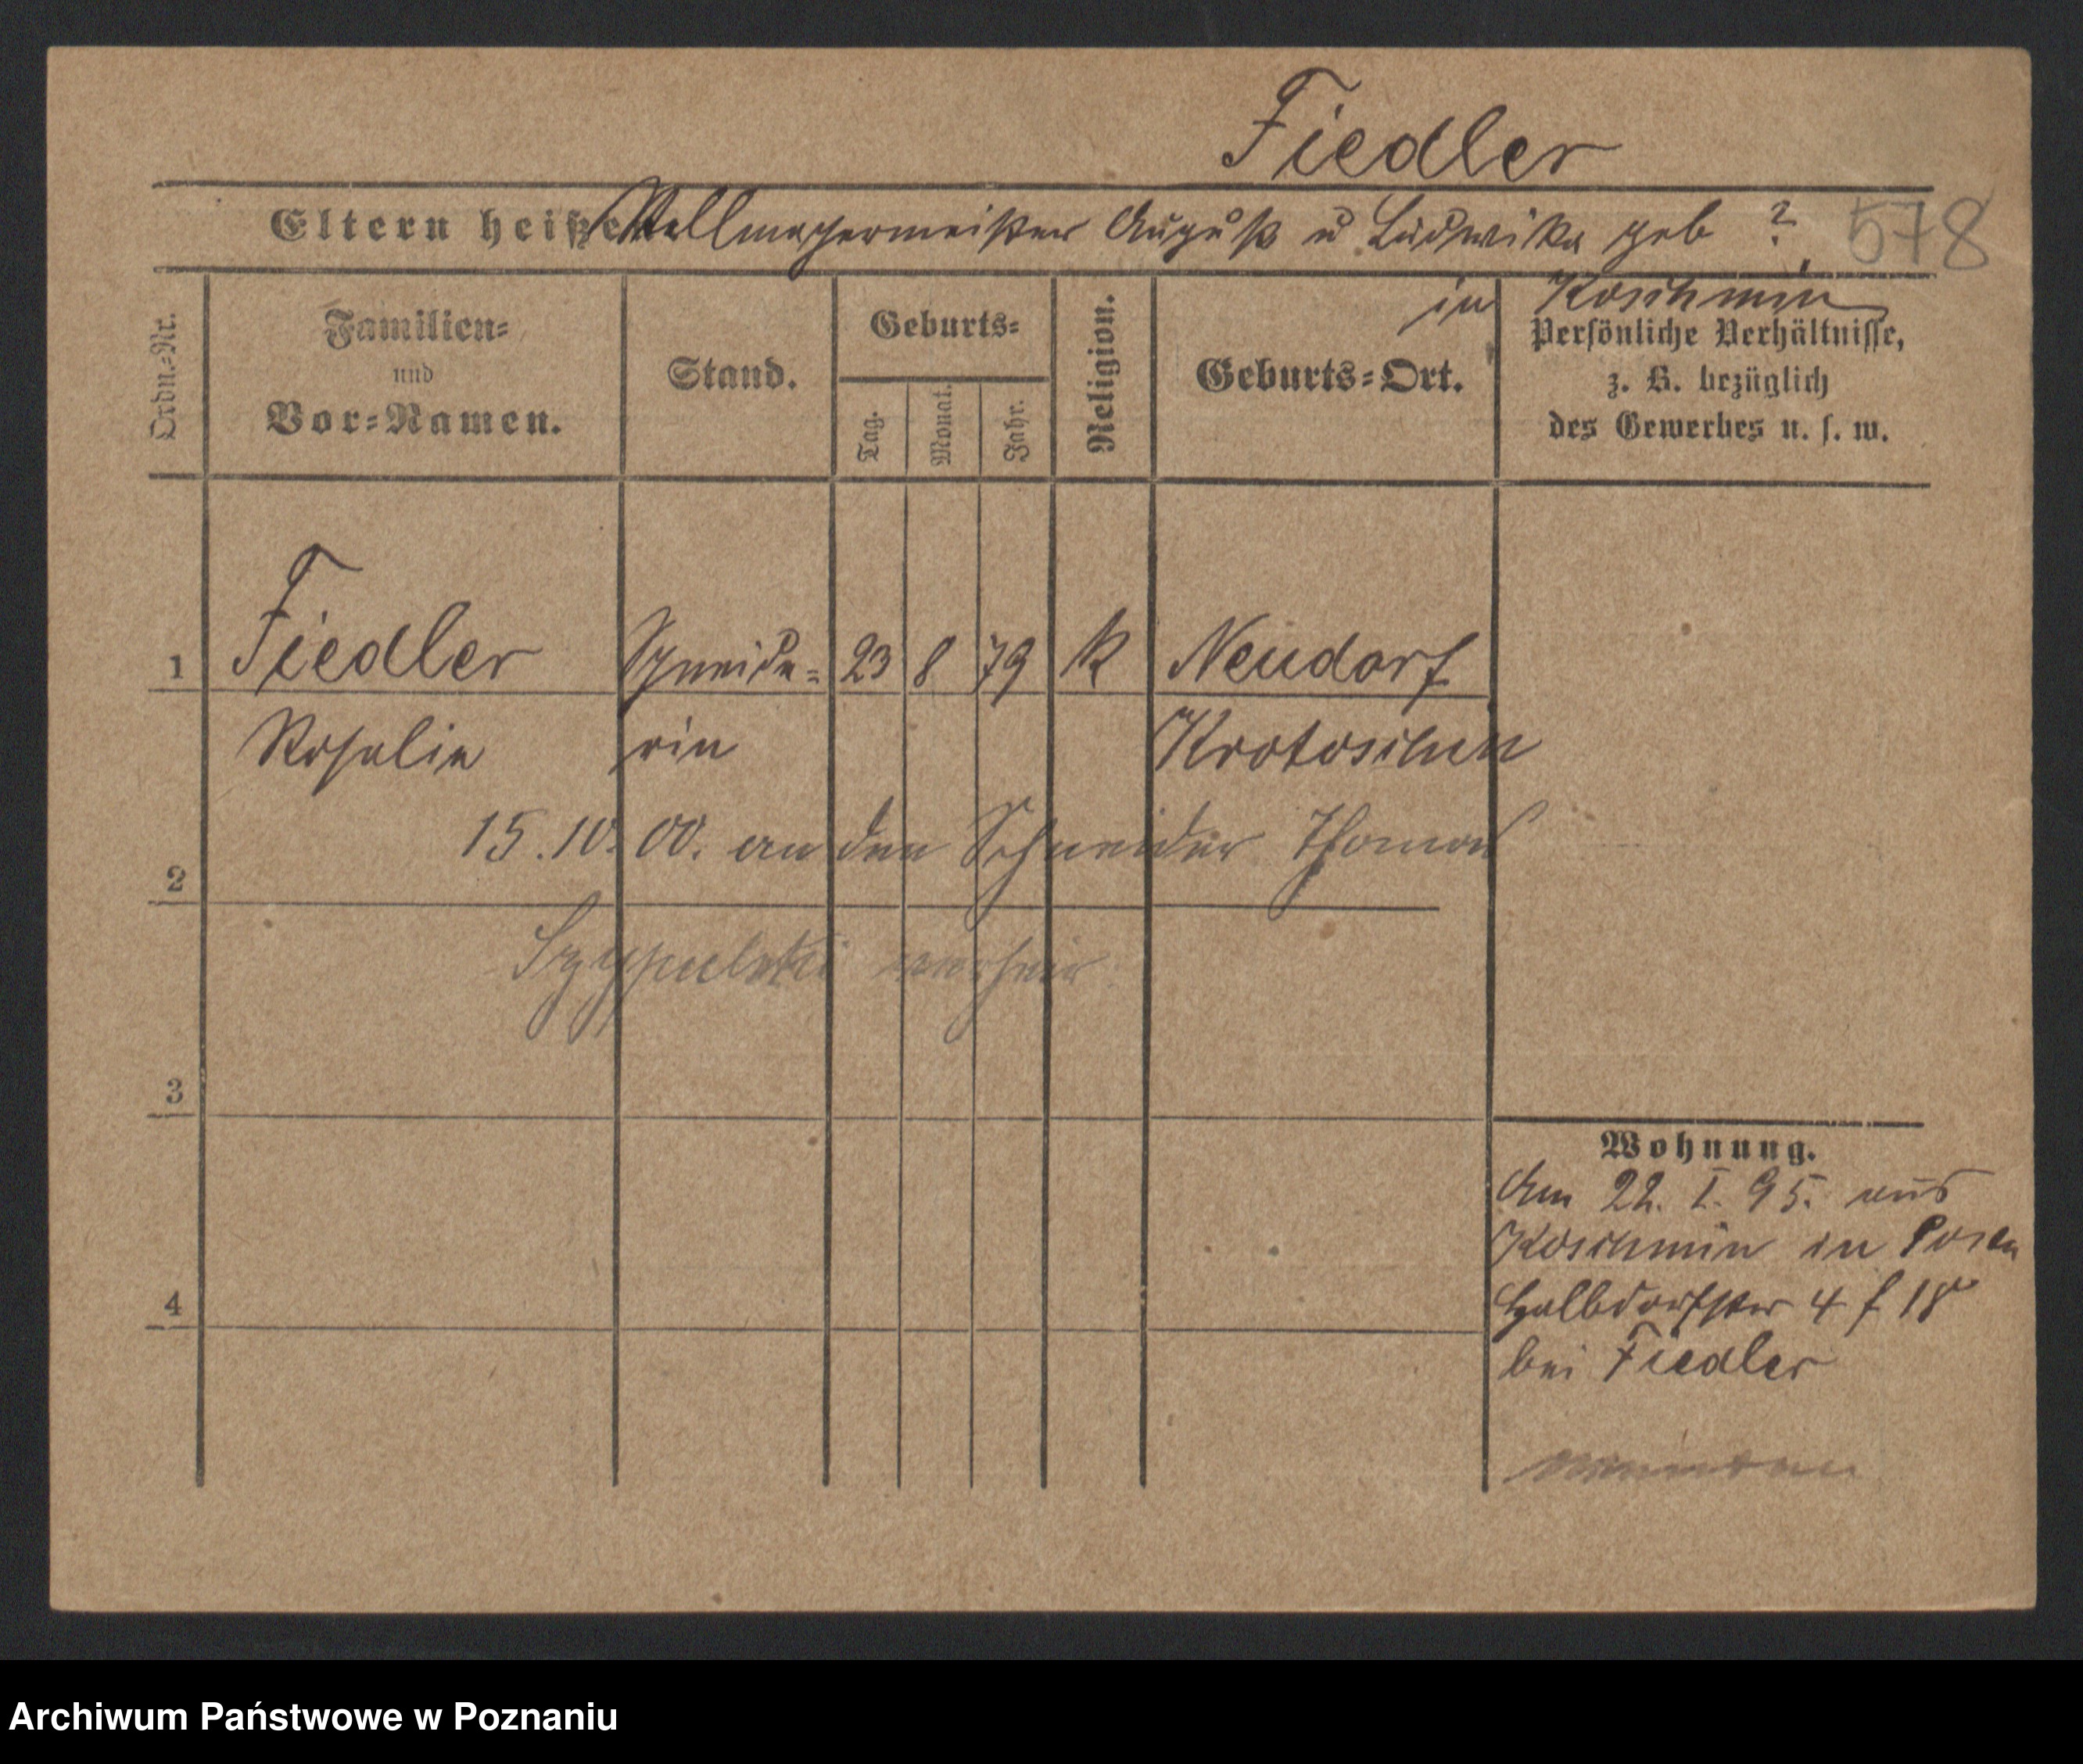 Fiedler
Eltern heißen Stellmachermeister August u Ludwika geb ?
578
in Koschmin
Ordn.=Nr.
Familien=
und
Vor=Namen.
Stand.
Geburts=
Tag.
Monat.
Jahr.
Religion.
Geburts=Ort.
Persönliche Verhältnisse,
z. B. bezüglich
des Gewerbes u. s. w.
1 Fiedler Schneide= 23 8 79 K Neudorf
Rosalie rin Krotoschin
15.10.00. an den Schneider Thomas
2
Szypulski verheir
3
4
Wohnung.
Am 22. I. 95. aus
Koschmin in Posen
Halbdorfstr 4 f 18
bei Fiedler